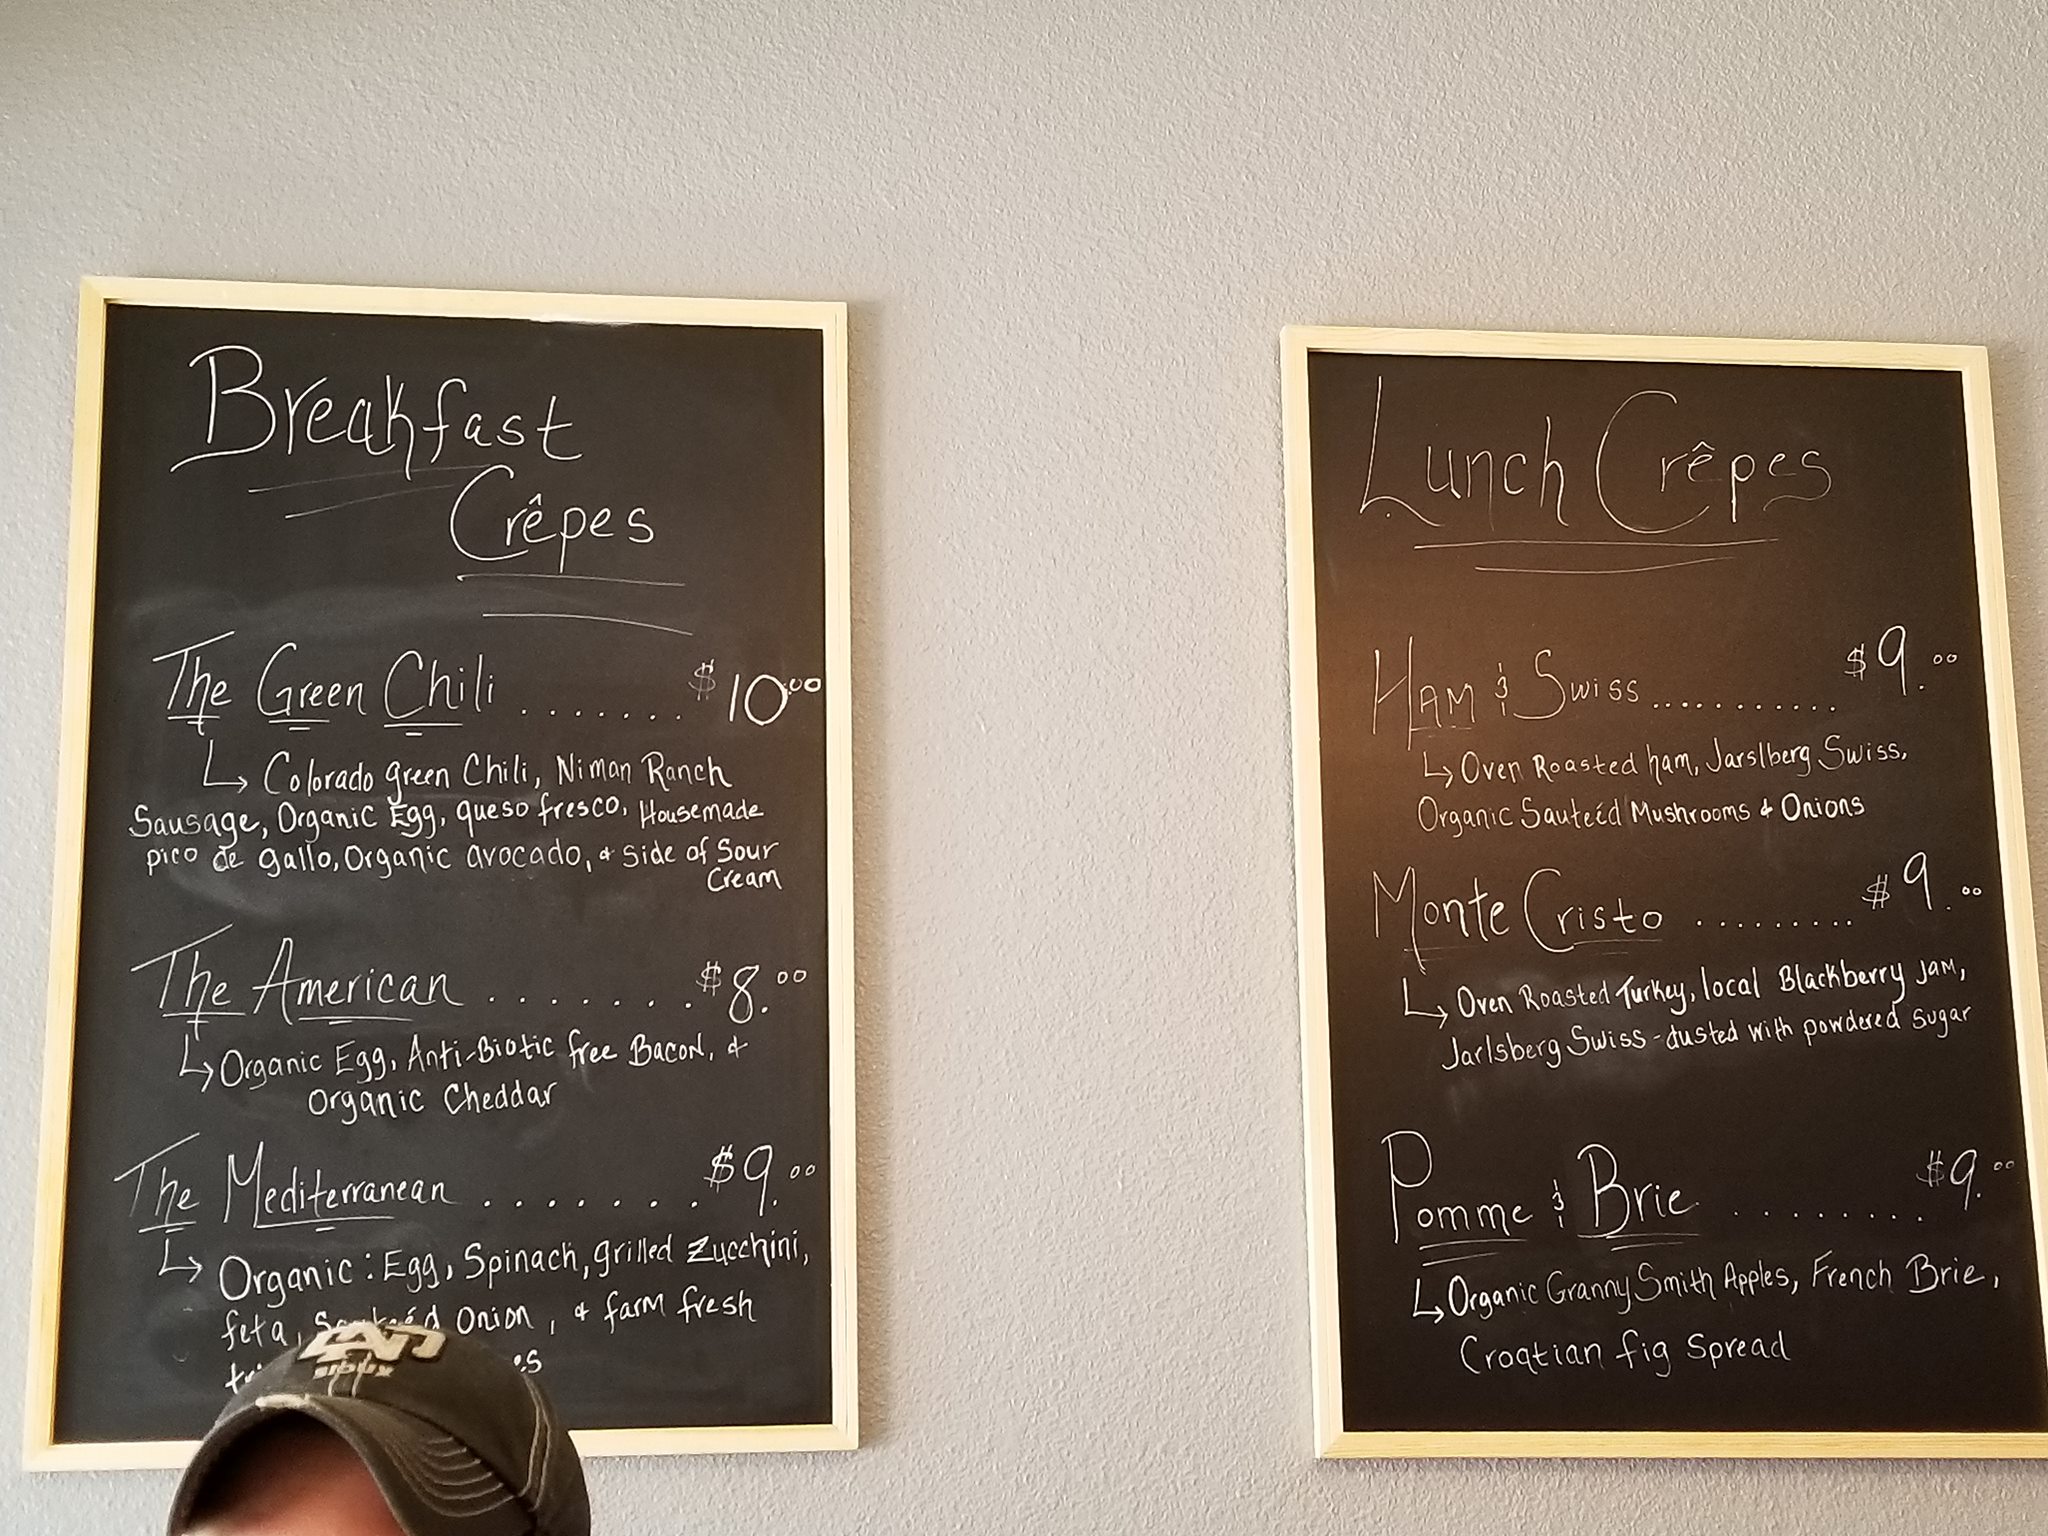 Breakfast
Crêpes
The Green Chili ....... $10.00
↳ Colorado green Chili, Niman Ranch
Sausage, Organic Egg, queso fresco, Housemade
pico de gallo, Organic avocado, & side of Sour
Cream
The American ....... $8.00
↳ Organic Egg, Anti-Biotic free Bacon, &
Organic Cheddar
The Mediterranean ....... $9.00
↳ Organic: Egg, Spinach, grilled Zucchini,
feta, Sauteéd Onion, & farm fresh
Sioux
Lunch Crêpes
Ham & Swiss ........... $9.00
↳ Oven Roasted ham, Jarslberg Swiss,
Organic Sauteéd Mushrooms & Onions
Monte Cristo ......... $9.00
↳ Oven Roasted Turkey, local Blackberry Jam,
Jarlsberg Swiss - dusted with powdered sugar
Pomme & Brie ......... $9.00
↳ Organic Granny Smith Apples, French Brie,
Croatian fig spread